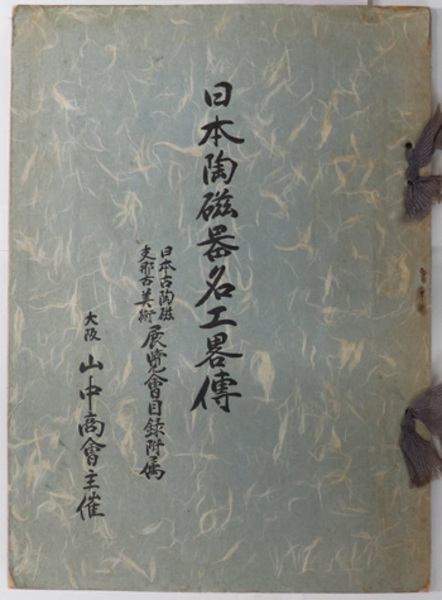 日本陶磁器名工畧傳
日本古陶磁
支那古美術
展覧會目録附属
大阪 山中商會主催